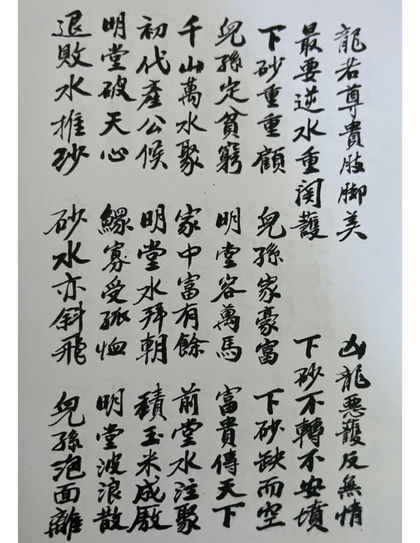 龍若尊貴肢脚美　凶龍惡護反無情
最要逆水重関護　下砂不轉不安墳
下砂重重顧　兒孫家豪富　下砂缺而空
兒孫定貧窮　明堂容萬馬　富貴傳天下
千山萬水聚　家中富有餘　前堂水注聚
初代產公候　明堂水拜朝　積玉米成廒
明堂破天心　鰥寡受孤恤　明堂波浪散
退敗水推砂　砂水亦斜飛　兒孫泡面離